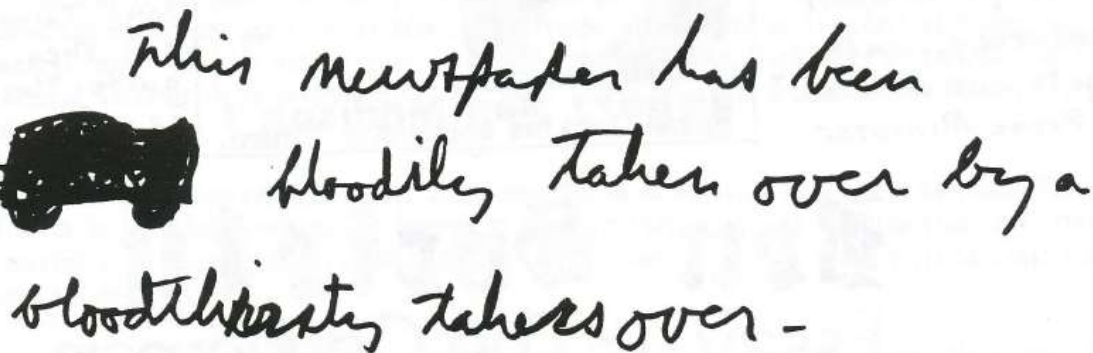 This newspaper has been
bloodily taken over by a
bloodthirsty takers over -